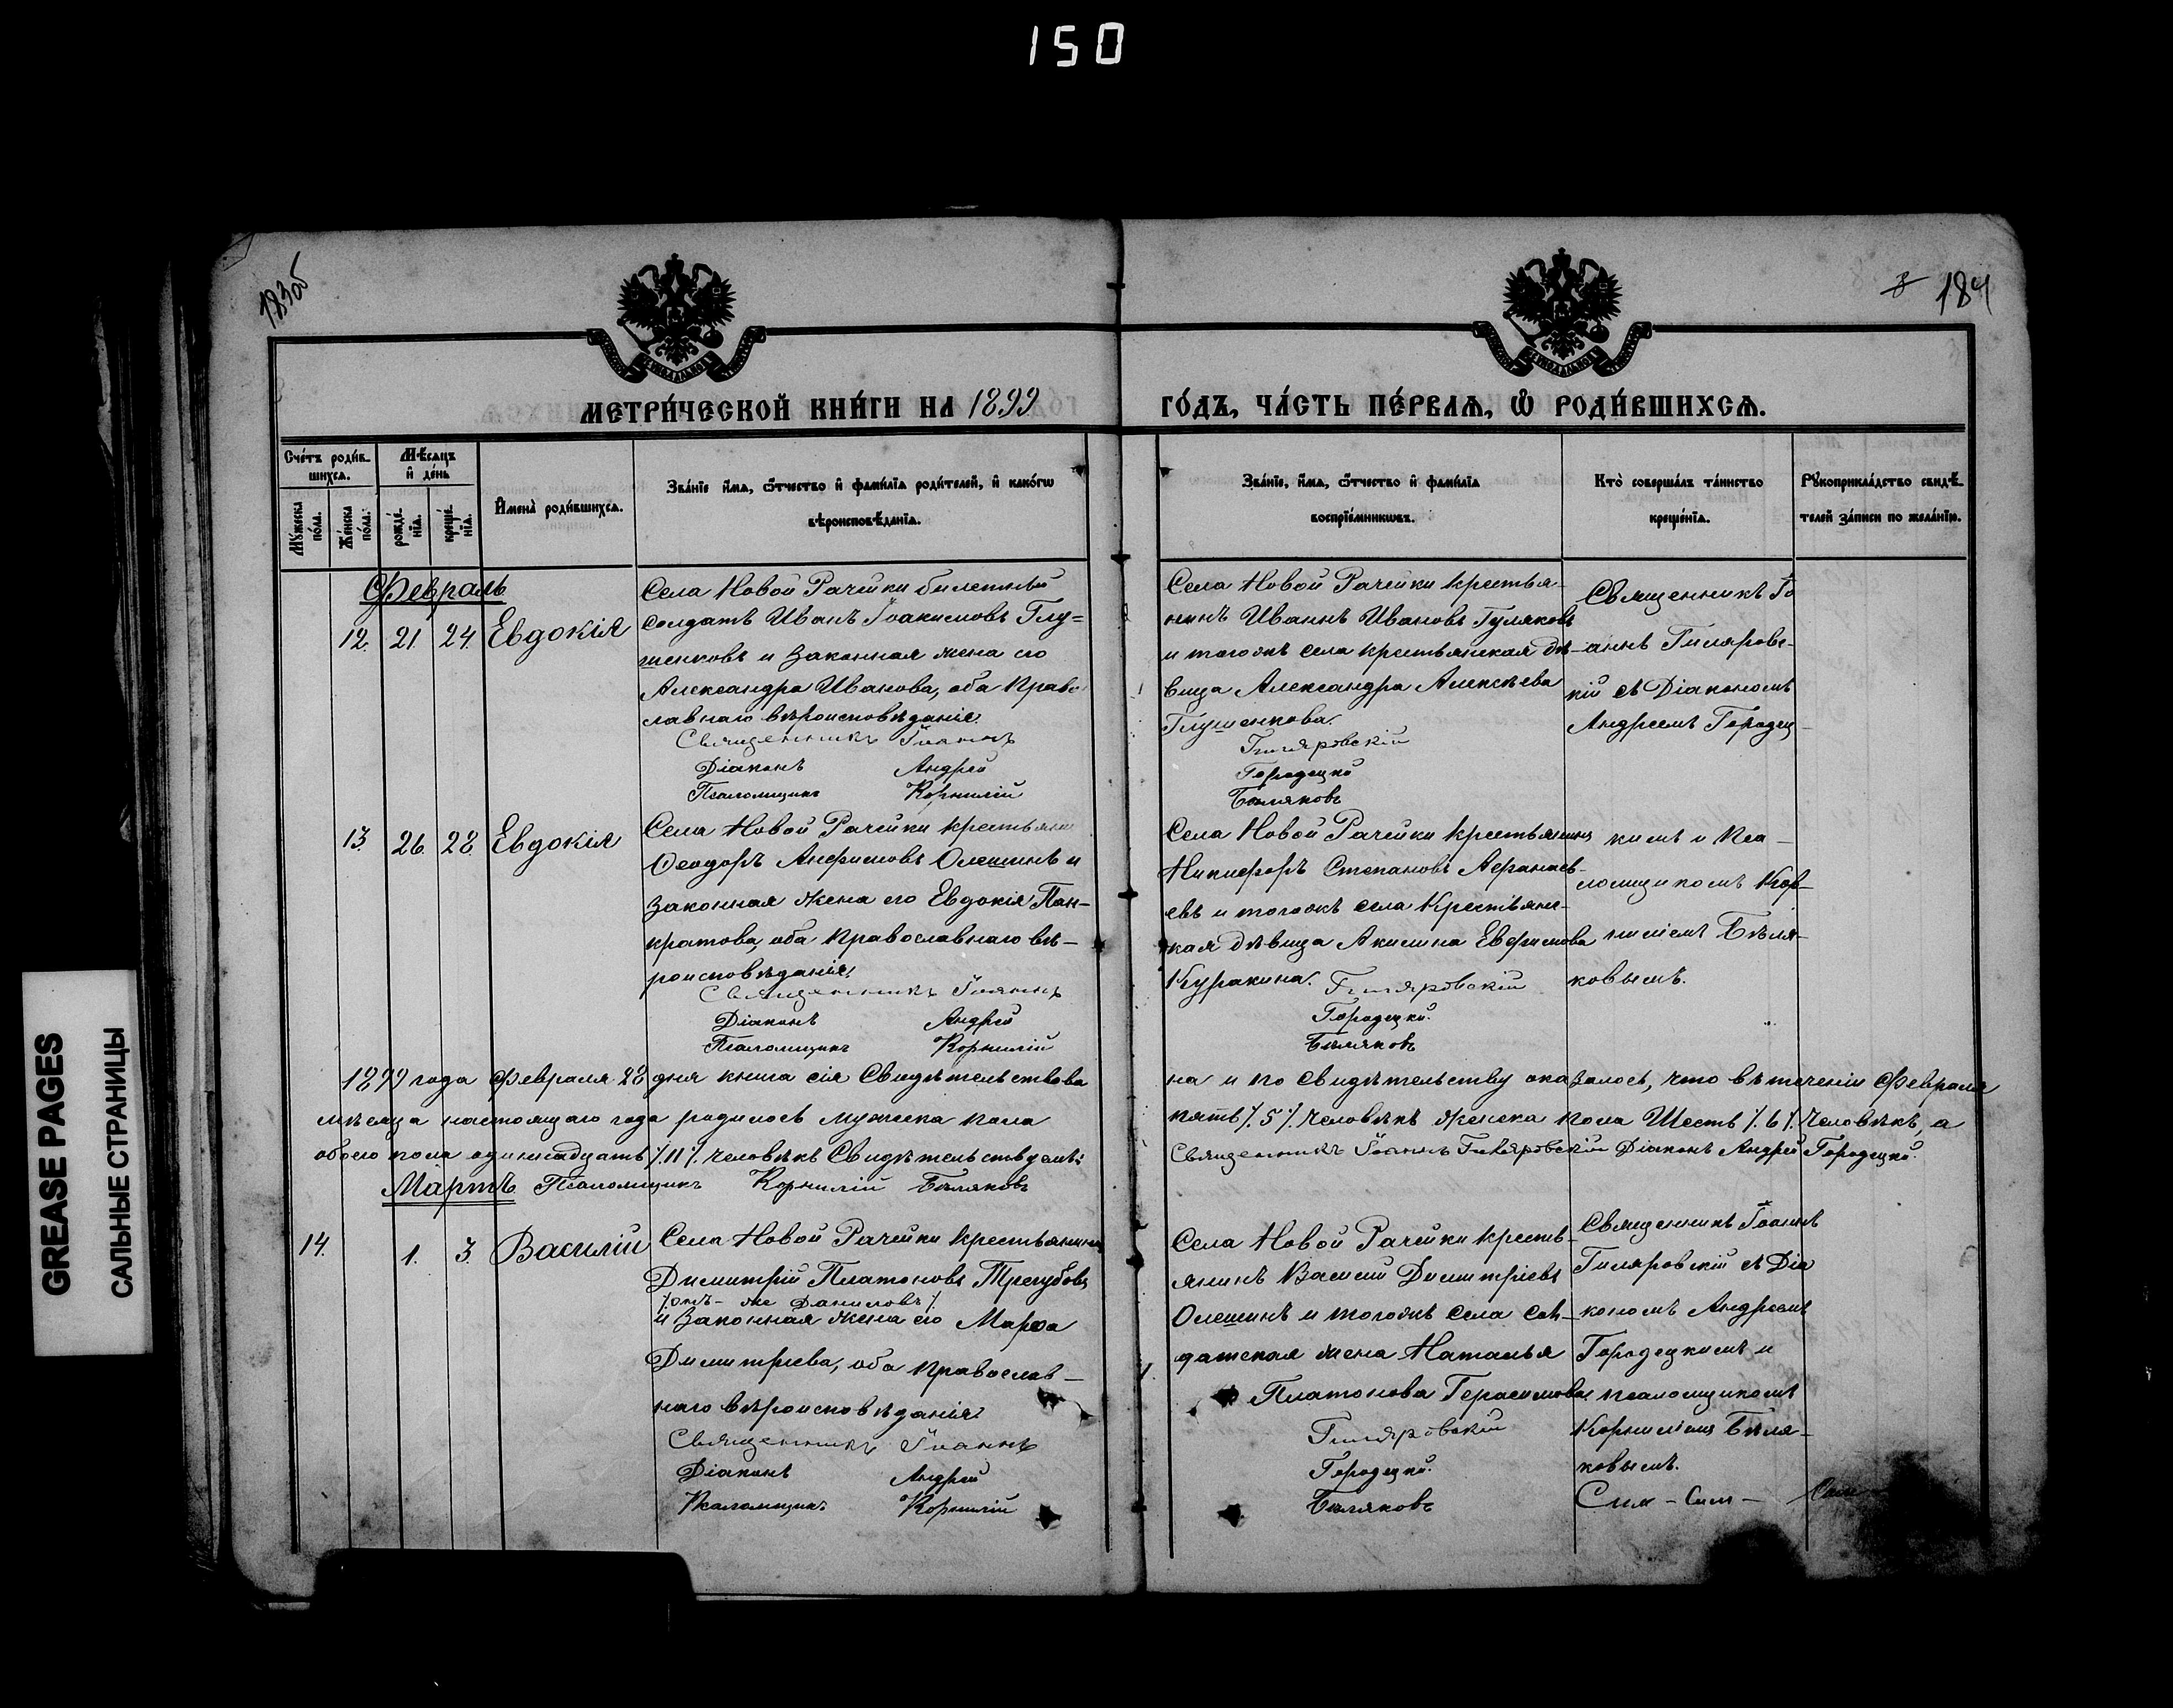 150
183об
8 184
МЕТРИ́ЧЕСКОЙ КНИ́ГИ НА 1899
ГО́ДЪ, ЧА́СТЬ ПЕ́РВАЯ, Ѡ РОДИ́ВШИХСЯ.
Сче́тъ роди́в-
шихся.
Мѣ́сяцъ
и҆ де́нь
Му́жеска
по́ла.
Же́нска
по́ла.
рожде́-
нїѧ.
креще́-
нїѧ.
И҆мена̀ роди́вшихсѧ.
Зва́нїе и҆́мѧ, ѻ҆́тчество и҆ фами́лїѧ роди́телей, и҆ како́гѡ
вѣроисповѣ́данїѧ.
Зва́нїе, и҆́мѧ, ѻ҆́тчество и҆ фами́лїѧ
воспрїе́мникѡвъ.
Кто̀ соверша́лъ та́инство
креще́нїѧ.
Рꙋкоприкла́дство свидѣ́-
телей за́писи по жела́нїю.
Февраль
12. 21. 24. Евдокія
Села Новой Рачейки билетный
солдатъ Иванъ Іоакимовъ Глу=
шенковъ и законная жена его
Александра Иванова, оба право
славнаго вѣроисповѣданія.
Священникъ Іоаннъ
Діаконъ Андрей
Псаломщикъ Корнилій
Села Новой Рачейки крестья-
нинъ Иванъ Ивановъ Гуляковъ
и тогожъ села крестьянская дѣ-
вица Александра Алексѣева
Глушенкова.
Гиляровскій
Городецкій
Бѣляковъ
Священникъ Іо
аннъ Гиляровс-
кій съ Діакономъ
Андреемъ Городец-
13. 26. 28. Евдокія
Села Новой Рачейки крестьянин
Ѳеодоръ Анфимовъ Олешинъ и
законная жена его Евдокія Пан-
кратова, оба православнаго вѣ-
роисповѣданія.
Священникъ Іоаннъ
Діаконъ Андрей
Псаломщикъ Корнилій
Села Новой Рачейки крестьянинъ
Никифоръ Степановъ Афанась-
евъ и тогожъ села крестьянс-
кая дѣвица Акилина Евфимова
Куракина.
Гиляровскій
Городецкій.
Бѣляковъ
кимъ и пса-
ломщикомъ Кор-
ниліемъ Бѣля-
ковымъ.
1899 года Февраля 28 дня книга сія Свидѣтельствова
на и по свидѣтельству оказалось, что въ теченіи Февраля
мѣсяца настоящаго года родилось мужеска пола
пять /. 5 /. человѣкъ женска пола Шесть /. 6 /. человѣкъ, а
обоего пола одиннадцать /. 11 /. человѣкъ Свидѣтельствуемъ:
Священникъ Іоаннъ Гиляровскій Діаконъ Андрей Городецкій.
Мартъ. Псаломщикъ Корнилій Бѣляковъ
14. 1. 3. Василій
Села Новой Рачейки крестьянинъ
Димитрій Платоновъ Трегубовъ
/. онъ-же Даниловъ /.
и законная жена его Марѳа
Димитріева, оба православ-
наго вѣроисповѣданія.
Священникъ Іоаннъ
Діаконъ Андрей
Псаломщикъ Корнилій
Села Новой Рачейки кресть-
янинъ Василій Димитріевъ
Олешинъ и тогожъ села сол-
датская жена Наталья
Платонова Герасимова.
Гиляровскій
Городецкій.
Бѣляковъ
Священникъ Іоаннъ
Гиляровскій съ Діа
кономъ Андреемъ
Городецкимъ и
псаломщикомъ
Корниліемъ Бѣля-
ковымъ.
GREASE PAGES
САЛЬНЫЕ СТРАНИЦЫ